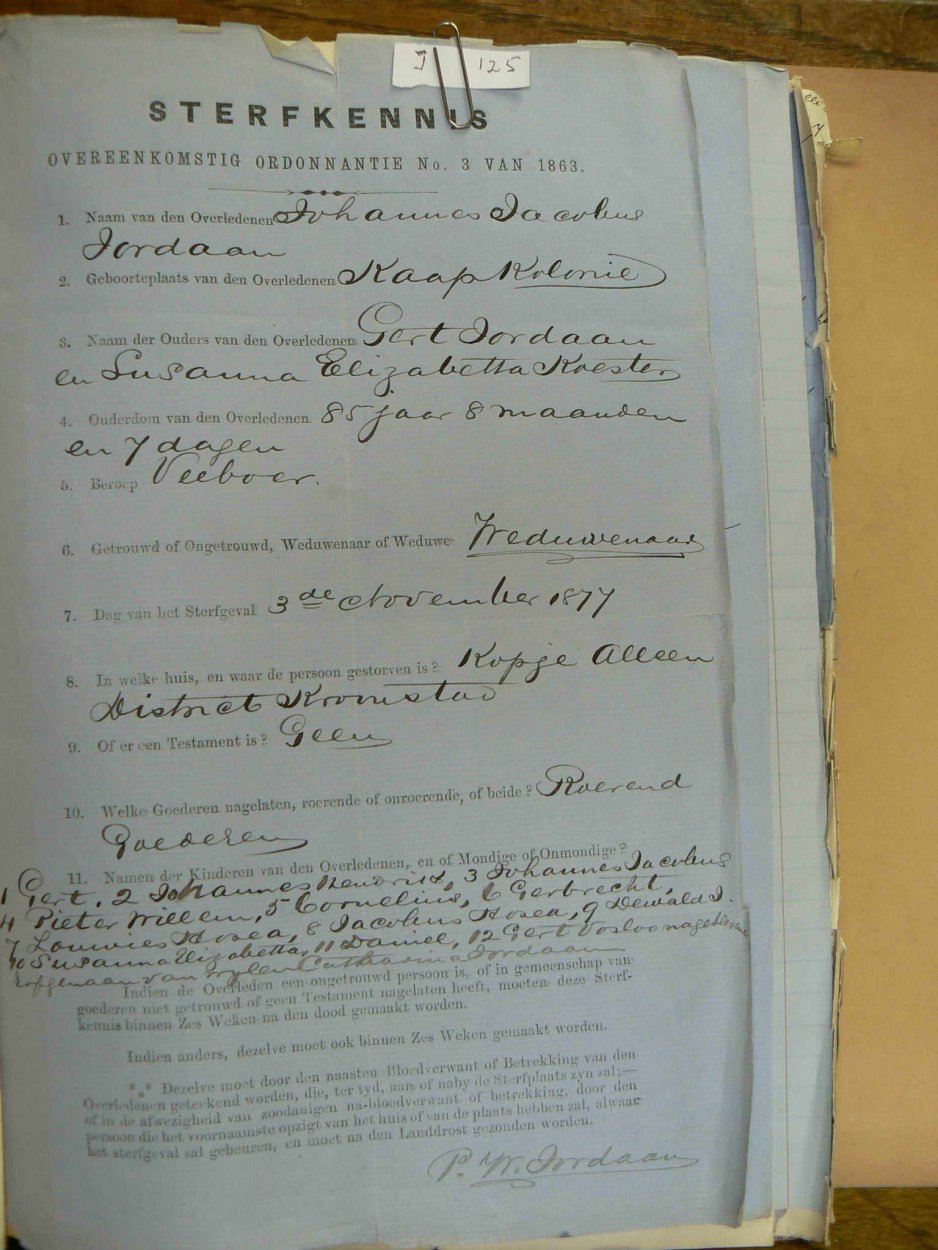 J 125
STERFKENNIS
OVEREENKOMSTIG ORDONNANTIE No. 3 VAN 1863.
1. Naam van den Overledenen Johannes Jacobus
Jordaan
2. Geboorteplaats van den Overledenen Kaap Kolonie
3. Naam der Ouders van den Overledenen Gert Jordaan
en Susanna Elizabetta Koester
4. Ouderdom van den Overledenen 85 jaar 8 maanden
en 7 dagen
5. Beroep Veeboer.
6. Getrouwd of Ongetrouwd, Weduwenaar of Weduwe Weduwenaar
7. Dag van het Sterfgeval 3de November 1877
8. In welke huis, en waar de persoon gestorven is? Kopje Alleen
District Kroonstad
9. Of er een Testament is? Geen
10. Welke Goederen nagelaten, roerende of onroerende, of beide? Roerend
Goederen
11. Namen der Kinderen van den Overledenen, en of Mondige of Onmondige?
1 Gert, 2 Johannes Hendrik, 3 Johannes Jacobus
4 Pieter Willem, 5 Cornelius, 6 Gerbrecht,
7 Louwies Hosea, 8 Jacobus Hosea, 9 Dewald J.
10 Susanna Elizabetta, 11 Daniel, 12 Gert Vosloo nagebleven
erfgenaam van wylen Catharina Jordaan
Indien de Overleden een ongetrouwd persoon is, of in gemeenschap van
goederen niet getrouwd of geen Testament nagelaten heeft, moeten deze Sterf-
kennis binnen Zes Weken na den dood gemaakt worden.
Indien anders, dezelve moet ook binnen Zes Weken gemaakt worden.
*.* Dezelve moet door den naasten Bloedverwant of Betrekking van den
Overledenen geteekend worden, die, ter tyd, aan of naby de Sterfplaats zyn zal;—
of in de afwezigheid van zoodanigen na-bloedverwant of betrekking, door den
persoon die het voornaamste opzigt van het huis of van de plaats hebben zal, alwaar
het sterfgeval zal gebeuren, en moet na den Landdrost gezonden worden.
P. W. Jordaan